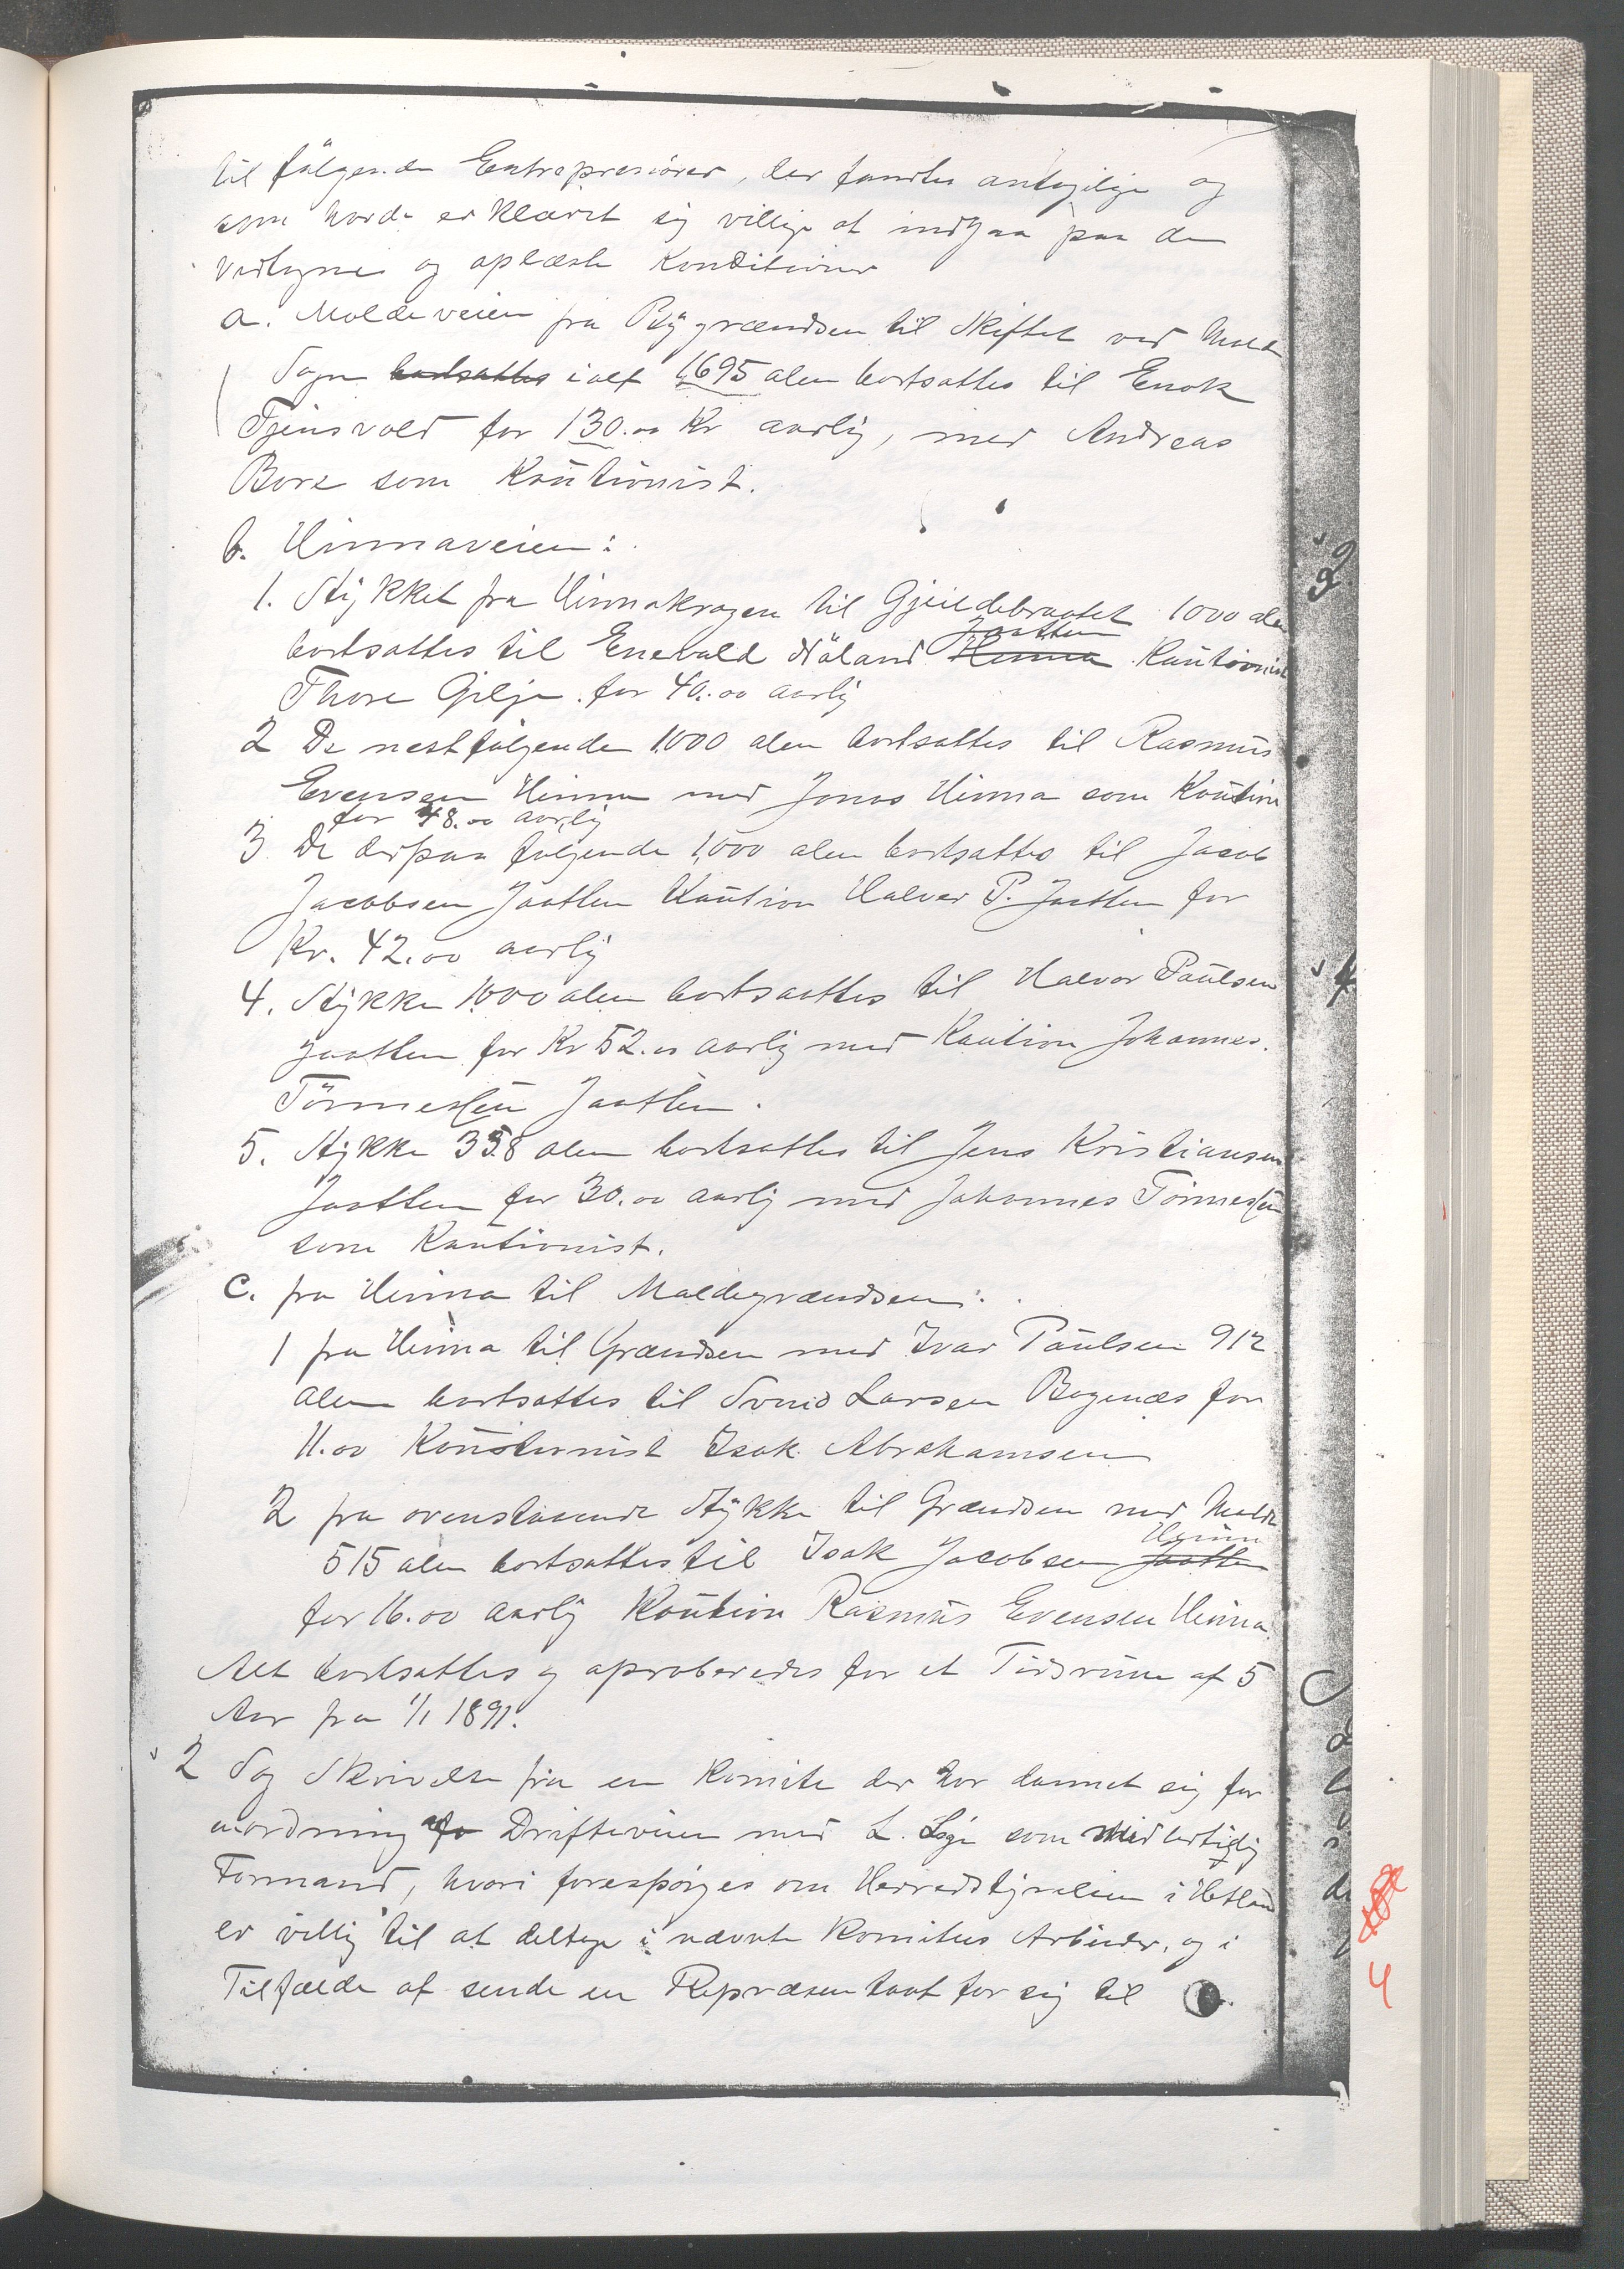 til følgende Entreprenører, der fandtes antagelige og
som havde erklæret sig villige at indgaa paa de
vedtagne og oplæste Konditioner
a. Maldeveien fra Bygrændsen til Skiftet ved Malde
bortsattes ialt 1695 alen bortsattes til Enok
Tjensvold for 130.00 Kr aarlig, med Andreas
Bore som Kautionist.
b. Hinnaveien:
1. Stykket fra Hinnakragen til 1000 alen
Jaatten
bortsattes til Enevald Håland Hinna Kautionist
Thore Gilje for 40.00 aarlig
2 De nestfølgende 1000 alen bortsattes til Rasmus
Evensen Hinna med Jonas Hinna som Kaution
for 48.00 aarlig
3 De derpaa følgende 1000 alen bortsattes til Jacob
Jacobsen Jaatten Kaution Halvor P. Jaatten for
Kr. 42.00 aarlig
4. Stykke 1000 alen bortsattes til Halvor Paulsen
Jaatten for Kr 52.00 aarlig med Kaution Johannes
Tönnesen Jaatten.
5. Stykke 358 alen bortsattes til Jens Kristiansen
Jaatten for 30.00 aarlig med Johannes Tönnesen
som Kautionist.
C. fra Hinna til Maldegrændsen:
1 fra Hinna til Grændsen med Ivar Paulsen 912
alen bortsattes til Svend Larsen Bogenæs for
11.00 Kautionist Isak Abrahamsen
2 fra ovenstaaende Stykke til Grændsen med Malde
Hinna
515 alen bortsattes til Isak Jacobsen Jaatten
for 16.00 aarlig Kaution Rasmus Evensen Hinna
Alt bortsattes og aproberedes for et Tidsrum af 5
Aar fra 1/1 1891.
2 Sag Skrivelse fra en Komite der har dannet sig for
Driftveien med L. som midlertidig
Formand, hvori forespörges om Herredstyrelsen i Hetland
er villig til at deltage i nævnte Komites Arbeider, og i
Tilfælde at sende en Repræsentant for sig til
4